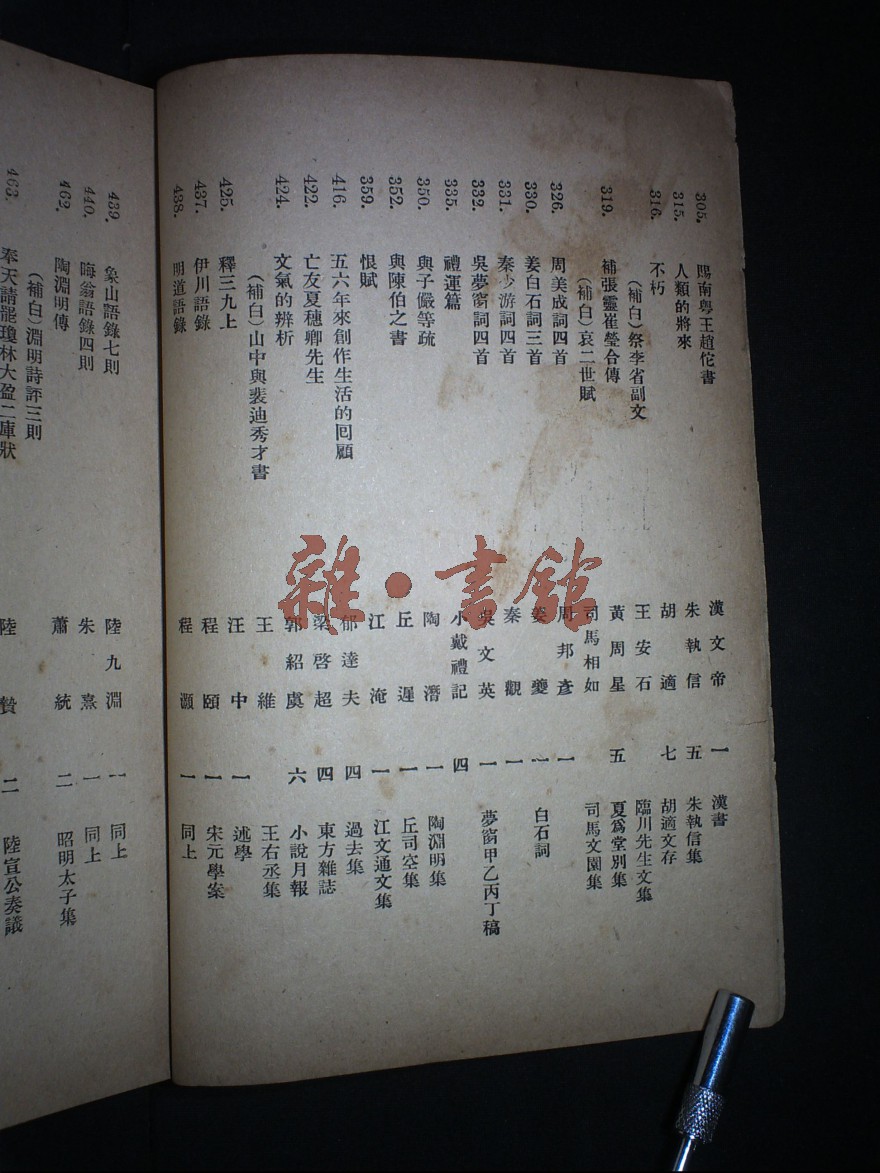 305. 賜南粵王趙佗書 漢文帝 一 漢書
315. 人類的將來 朱執信 五 朱執信集
316. 不朽 胡適 七 胡適文存
（補白）祭李省副文 王安石 臨川先生文集
319. 補張靈崔瑩合傳 黃周星 五 夏爲堂別集
（補白）哀二世賦 司馬相如 司馬文園集
326. 周美成詞四首 周邦彥 一
330. 姜白石詞三首 姜夔 一 白石詞
331. 秦少游詞四首 秦觀 一
332. 吳夢窗詞四首 吳文英 一 夢窗甲乙丙丁稿
335. 禮運篇 小戴禮記 四
350. 與子儼等疏 陶潛 一 陶淵明集
352. 與陳伯之書 丘遲 一 丘司空集
359. 恨賦 江淹 一 江文通文集
416. 五六年來創作生活的回顧 郁達夫 四 過去集
422. 亡友夏穗卿先生 梁啓超 四 東方雜誌
424. 文氣的辨析 郭紹虞 六 小說月報
（補白）山中與裴迪秀才書 王維 王右丞集
425. 釋三九上 汪中 一 述學
437. 伊川語錄 程頤 一 宋元學案
438. 明道語錄 程灝 一 同上
439. 象山語錄七則 陸九淵 一 同上
440. 晦翁語錄四則 朱熹 一 同上
462. 陶淵明傳 蕭統 二 昭明太子集
（補白）淵明詩評三則
463. 奉天請罷瓊林大盈二庫狀 陸贄 二 陸宣公奏議
雜·書館